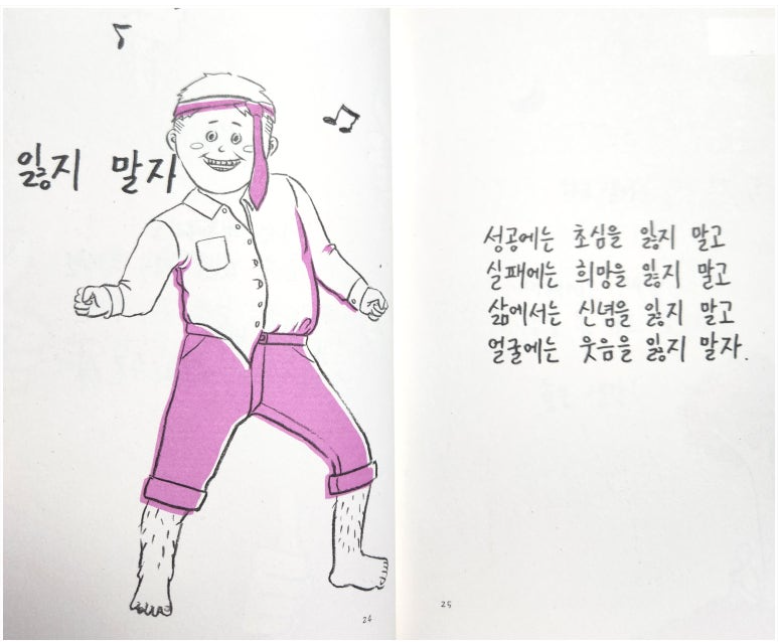 잃지 말자
성공에는 초심을 잃지 말고
실패에는 희망을 잃지 말고
삶에서는 신념을 잃지 말고
얼굴에는 웃음을 잃지 말자.
24
25